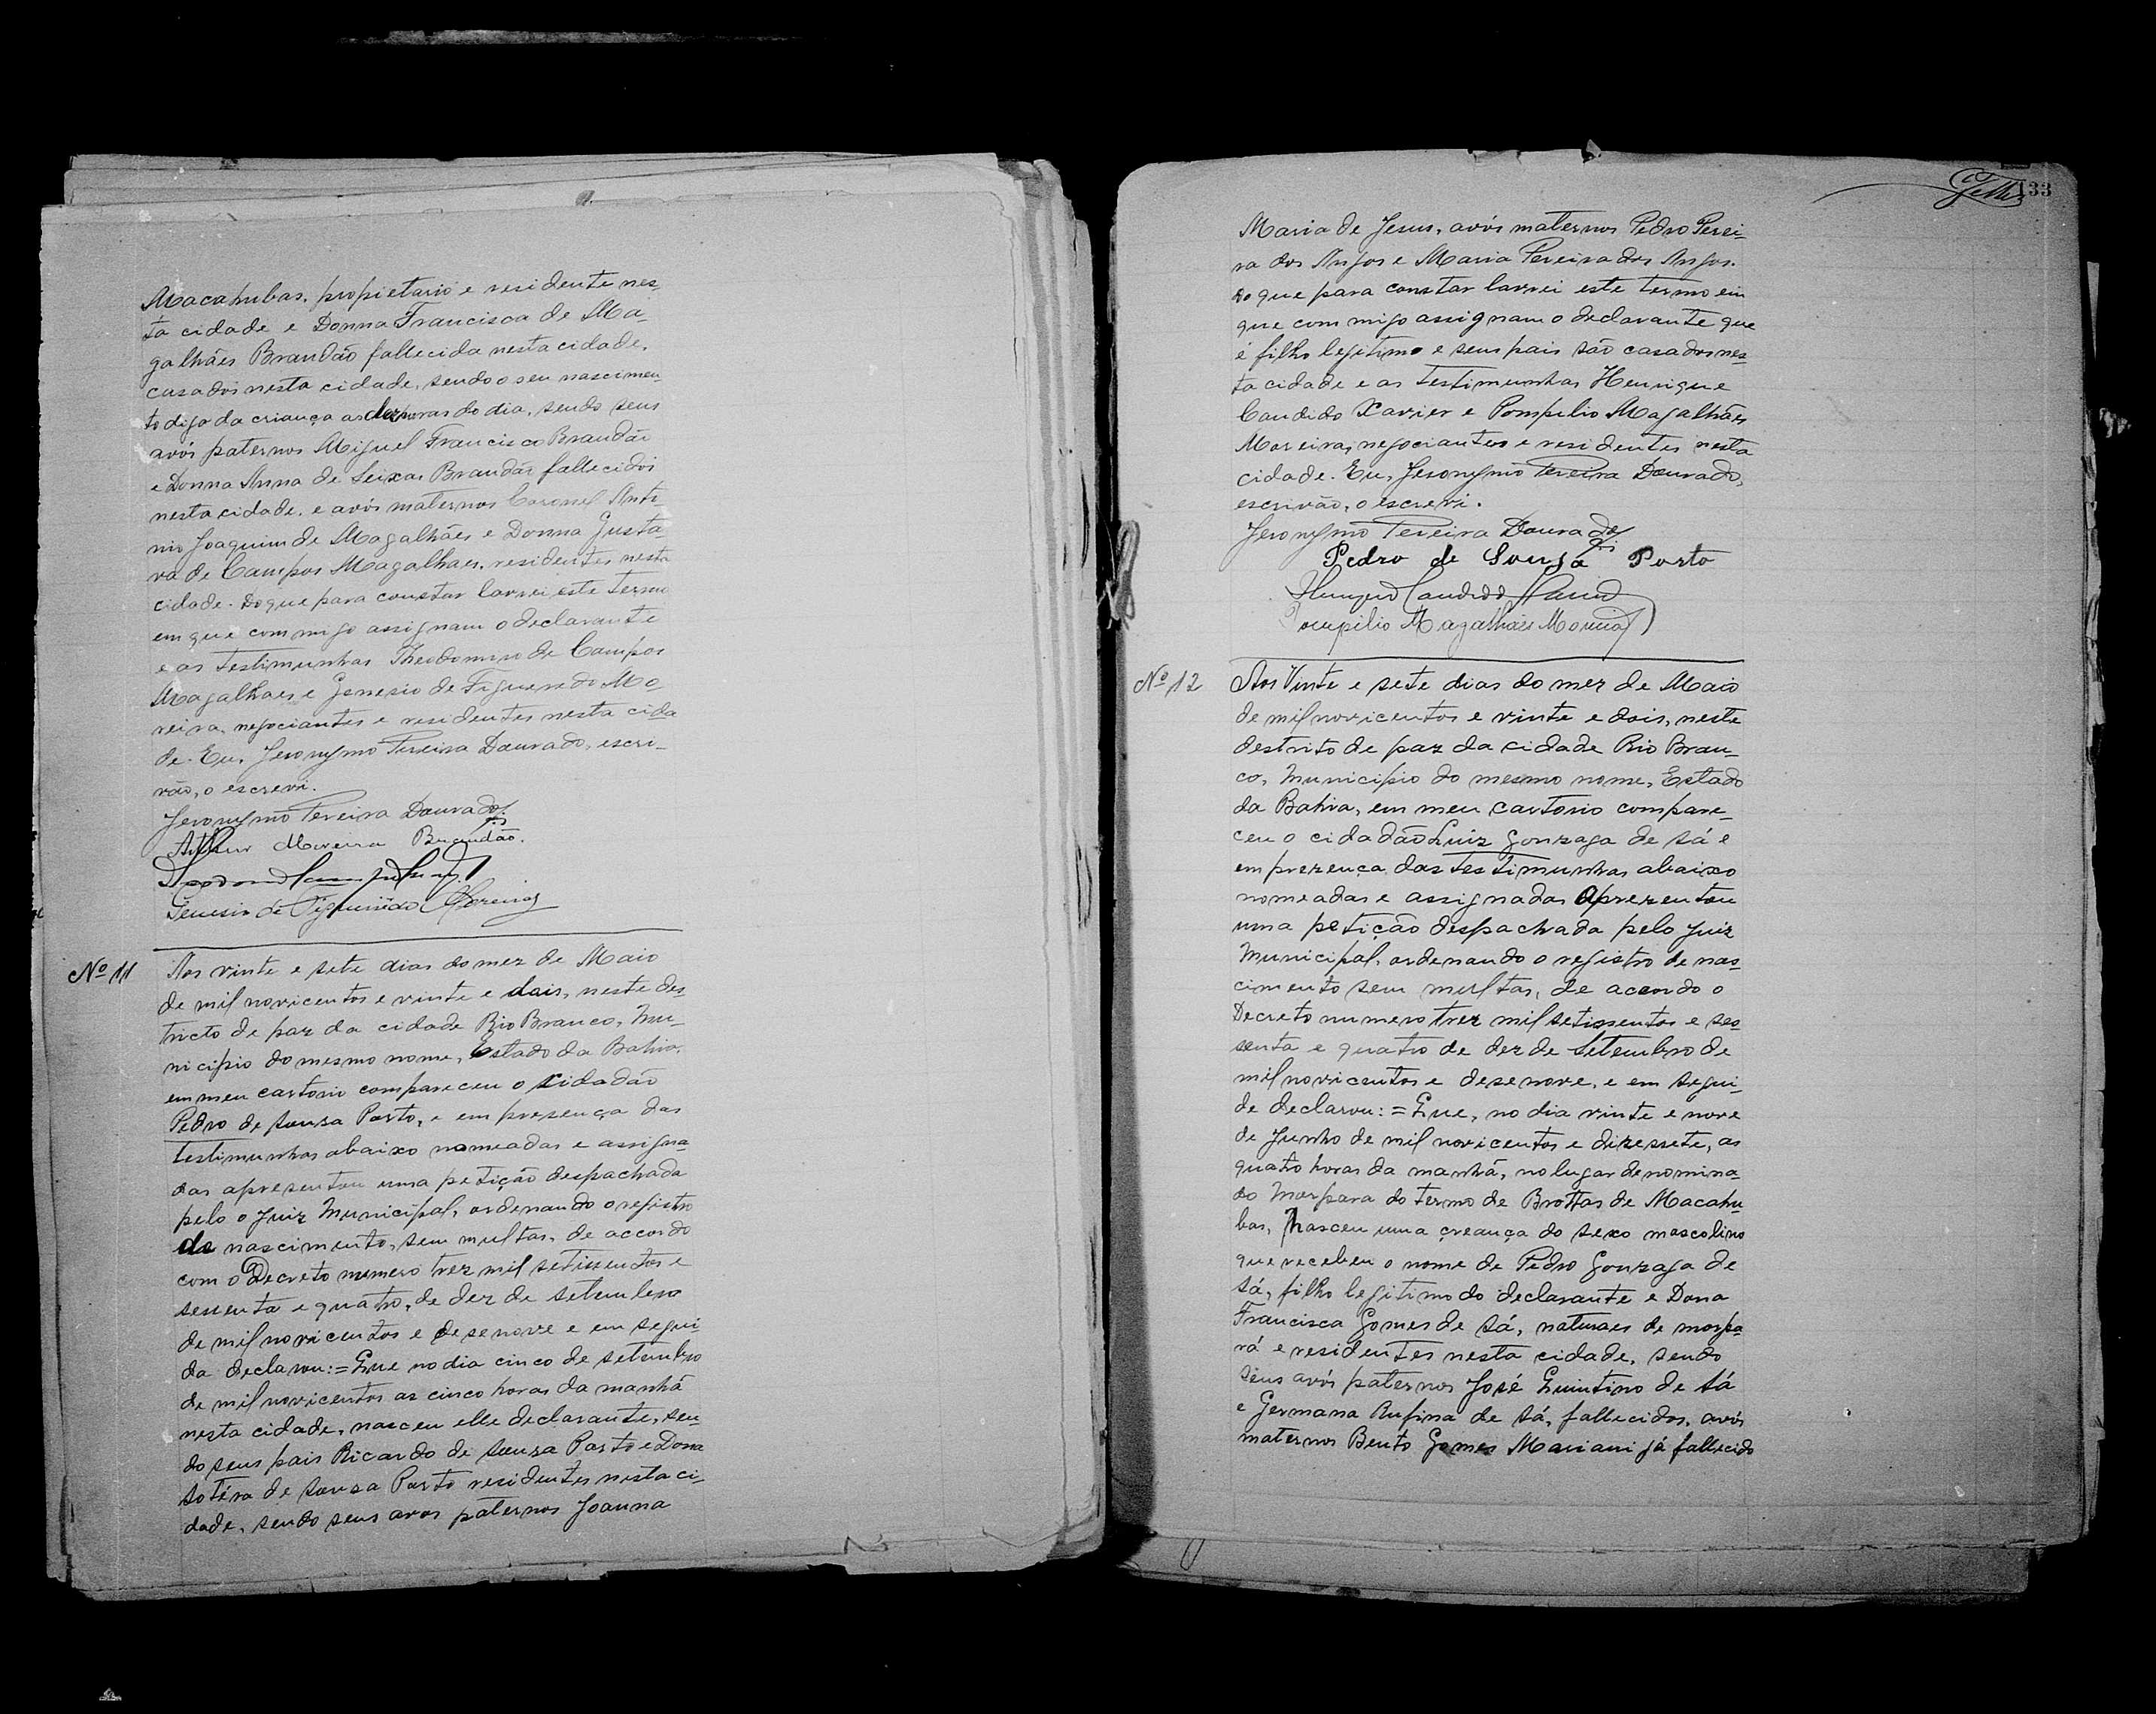 Macahubas, propietario e residente nes-
ta cidade e Donna Francisca de Ma-
galhães Brandão fallecida nesta cidade,
casados nesta cidade, sendo o seu nascimen-
to digo da criança as dez horas do dia, sendo seus
avós paternos Miguel Francisco Brandão
e Donna Anna de Seixas Brandão fallecidos
nesta cidade, e avós maternos Coronel Anto-
nio Joaquim de Magalhães e Donna Gusta-
va de Campos Magalhães, residentes nesta
cidade. Do que para constar lavrei este termo
em que commigo assignam o declarante
e as testimunhas Theodomiro de Campos
Magalhaes e Genesio de Figueredo Mo-
reira, negociantes e residentes nesta cida
de. Eu, Jeronymo Pereira Dourado, escri-
vão, o escrevi.
Jeronymo Pereira Dourado
Arthur Moreira Brandão.
Genesio de Figueirêdo Moreira
Nº 11
Aos vinte e sete dias do mez de Maio
de mil novicentos e vinte e dois, neste des-
tricto de paz da cidade Rio Branco, Mu-
nicipio do mesmo nome, Estado da Bahia,
em meu cartorio compareceu o cidadão
Pedro de Sousa Porto, e em presença das
testimunhas abaixo nomeadas e assigna-
das apresentou uma petição despachada
pelo o Juiz Municipal, ordenando o registro
de nascimento, sem multas, de accordo
com o Decreto numero trez mil setissentos e
sessenta e quatro, de dez de setembro
de mil novicentos e desenove e em segui-
da declarou: = Que no dia cinco de setembro
de mil novicentos as cinco horas da manhã
nesta cidade, nasceu elle declarante, sen-
do seus pais Ricardo de Sousa Porto e Dona
Sotéra de Sousa Porto residentes nesta ci-
dade, sendo seus avos paternos Joanna
133
Maria de Jesus, avós maternos Pedro Perei-
ra dos Anjos e Maria Pereira dos Anjos.
Do que para constar lavrei este termo em
que commigo assignam o declarante que
é filho legitimo e seus pais são casados nes-
ta cidade e as testimunhas Henrique
Candido Xavier e Pompilio Magalhães
Moreira, negociantes e residentes nesta
cidade. Eu, Jeronymo Pereira Dourado,
escrivão, o escrevi.
Jeronymo Pereira Dourado
Pedro de Sousa Porto
Pompilio Magalhães Moreira
Nº 12
Aos Vinte e sete dias do mez de Maio
de mil novicentos e vinte e dois, neste
destrito de paz da cidade Rio Bran-
co, Municipio do mesmo nome, Estado
da Bahia, em meu cartorio compare-
ceu o cidadão Luiz Gonzaga de Sá e
em prezença das testimunhas abaixo
nomeadas e assignadas aprezentou
uma petição despachada pelo Juiz
Municipal, ordenando o registro de nas-
cimento sem multas, de acordo o
Decreto numero trez mil setissentos e ses-
senta e quatro de dez de Setembro de
mil novicentos e desenove, e em segui-
de declarou: = Que, no dia vinte e nove
de Junho de mil novicentos e dizessete, as
quatro horas da manhã, no lugar denomina-
do Morpara do termo de Brottas de Macahu-
bas, nasceu uma creança do sexo mascolino
que recebeu o nome de Pedro Gonzaga de
Sá, filho legitimo do declarante e Dona
Francisca Gomes de Sá, naturaes de morpa-
rá e residentes nesta cidade, sendo
seus avós paternos José Quintino de Sá
e Germana Rufina de Sá, fallecidos, avós
maternos Bento Gomes Mariani já fallecido